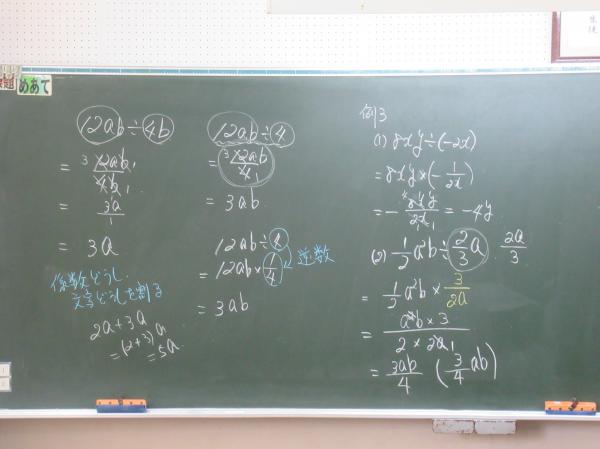 めあて
12ab÷4b
= 3 12ab 1 / 4b 1
= 3a/1
= 3a
係数どうし、
文字どうしを割る
2a+3a
=(2+3)a
=5a
12ab÷4
= 3 12ab / 4 1
= 3ab
12ab÷4
= 12ab×1/4 逆数
= 3ab
例3
(1) 8xy÷(-2x)
= 8xy×(-1/2x)
= -8xy/2x = -4y
(2) 1/2a²b÷2/3a 2a/3
= 1/2a²b×3/2a
= a²b×3 / 2×2a 1
= 3ab/4 (3/4ab)